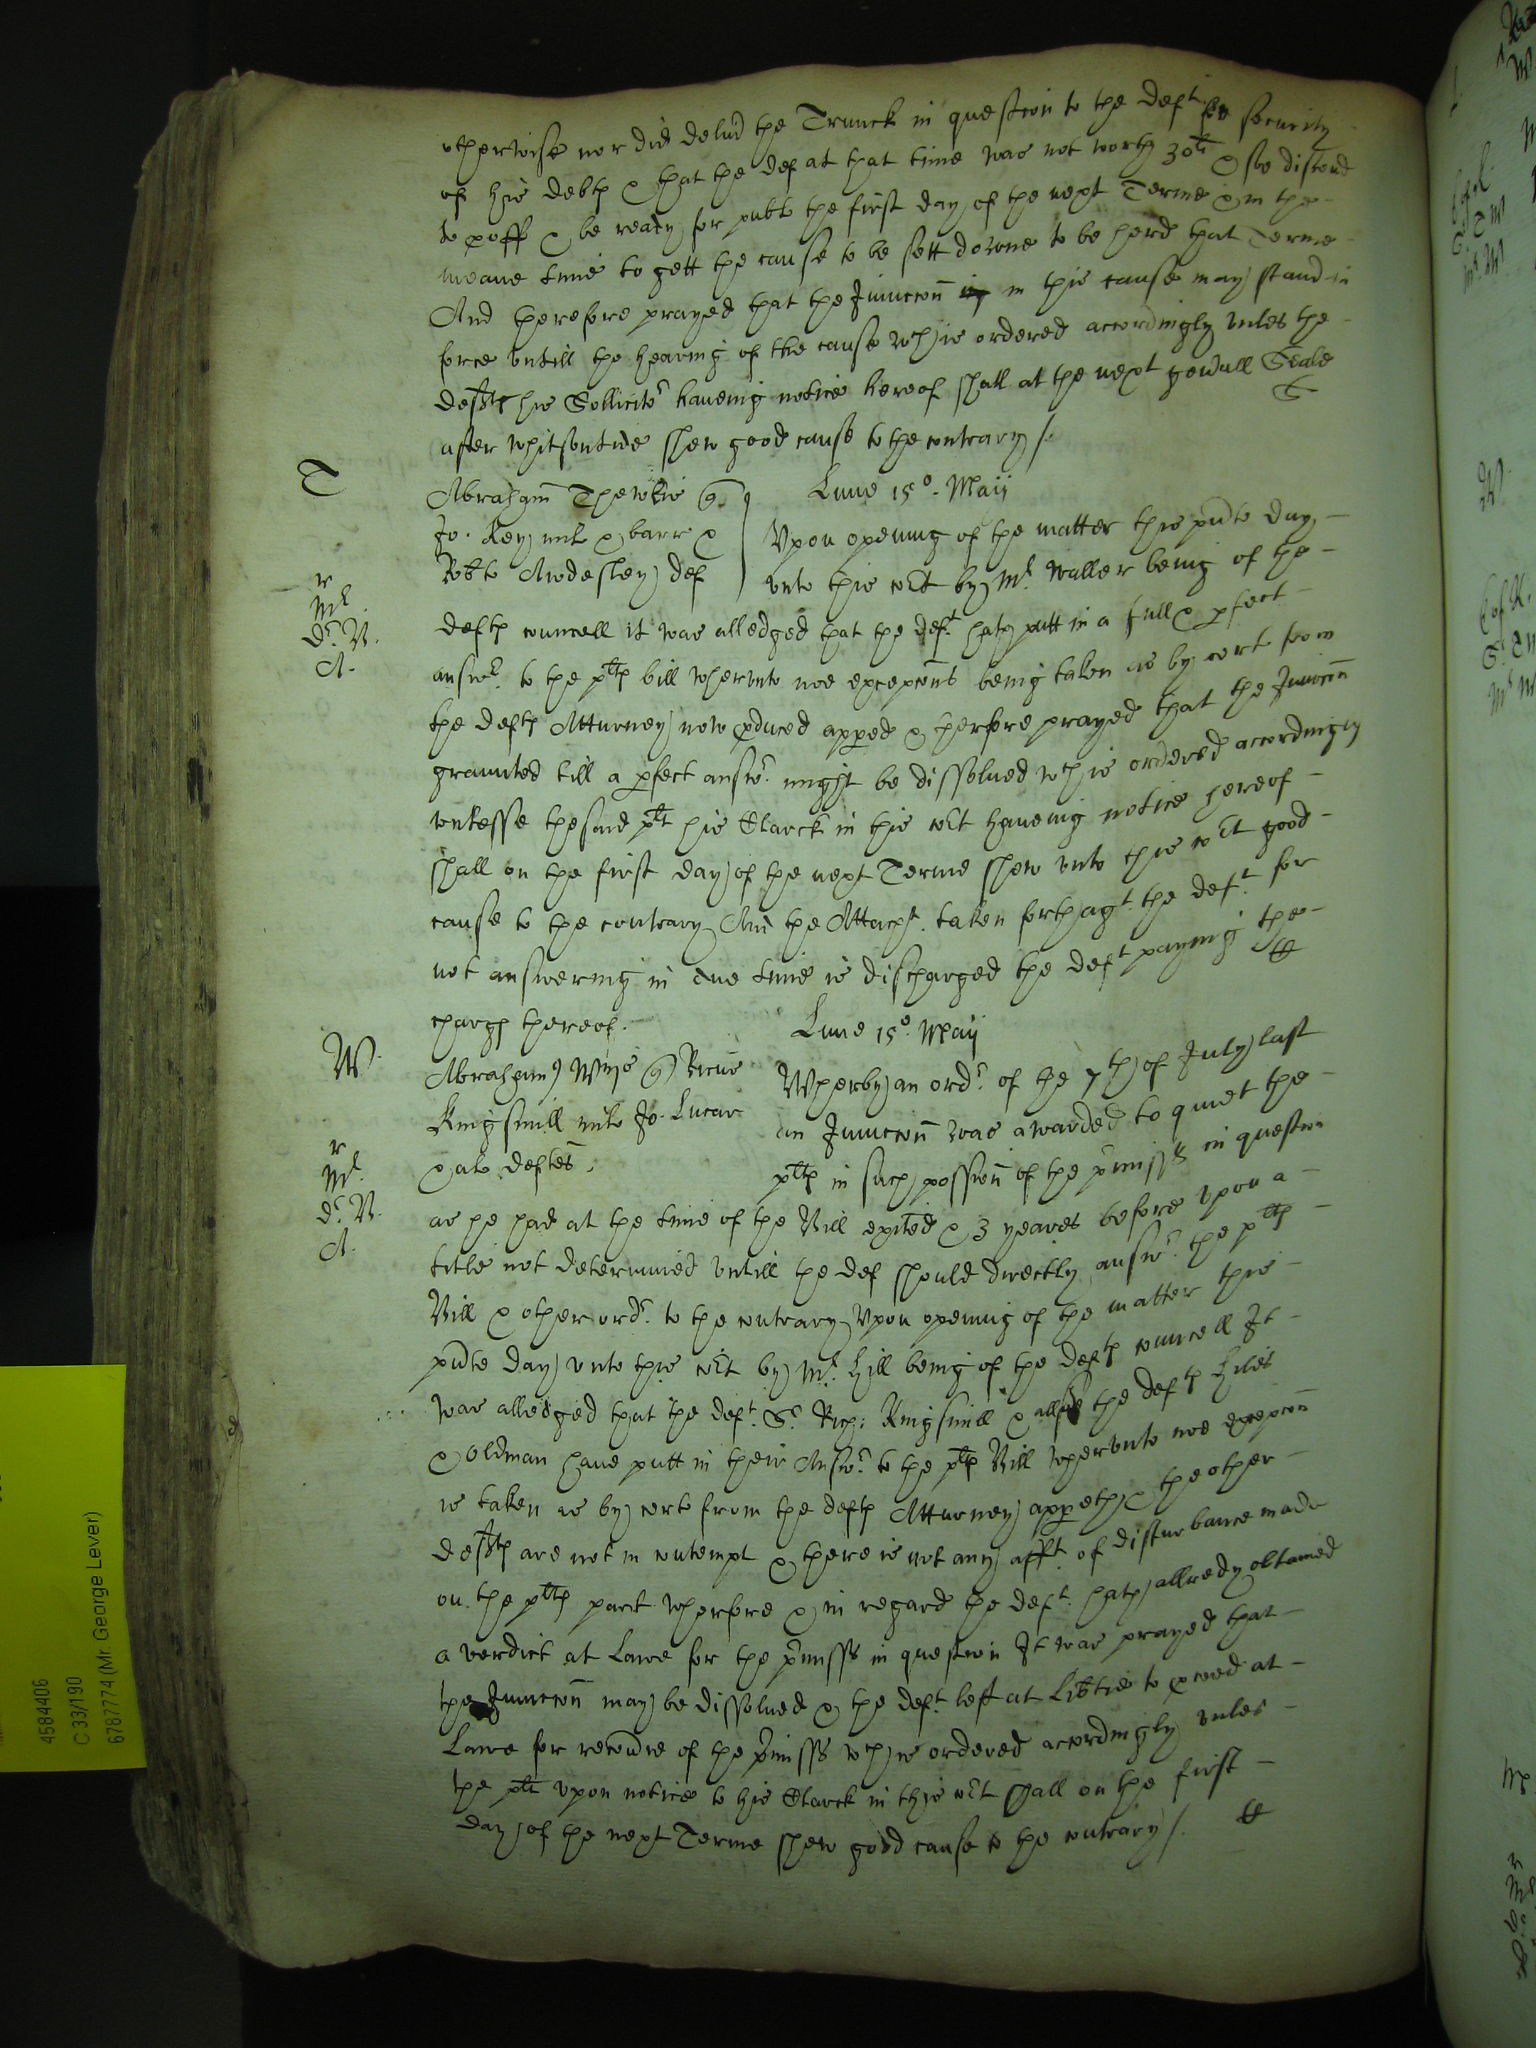 otherwise nor did deliu'd the Trunck in question to the deft for security
of his debts & that the def at that time was not worth 30li & soe
to & be ready for publ the first day of the next Terme & in the
meane time to gett the cause to be sett downe to be herd that Terme
And therefore prayed that the Iniuncon in this cause may stand in
force untill the hearing of the cause wch is ordered accordingly unles the
defts his Sollicitor haueing notice hereof shall at the next gen'all Seale
after whitsontide shew good cause to the contrary /.
T
Lune 15o. Maij
Jo. Key mil & barr &
Robto def
Vpon opening of the matter this p'nte day
unto this co't by Mr Waller being of the
r
Mr
A.
defts councell it was alledged that the deft hath putt in a full & p'fect
answr. to the plts bill wherunto noe excepcons being taken as by cert from
the defts Atturney now p'duced app'ed & therfore prayed that the Iniuncon
graunted till a p'fect answr. might be dissolued wch is ordered accordingly
unlesse the said plt his Clarck in this co't haueing notice hereof
shall on the first day of the next Terme shew unto this co't good
cause to the contrary And the Attachmt. taken forth agt. the deft. for
not answering in due time is discharged the deft paying the
charge thereof.
Lune 15o. Maij
W.
Kingsmill mil Jo. Lucar
& al deftes.
Wherby an ordr. of the 7th of July last
an Iniuncon was awarded to quiet the
plts in such possion of the p'misss in question
r
Mr.
A.
as he had at the time of the Bill exited & 3 yeares before upon a
title not determined untill the def should directly answr. the plts
Bill & other ordr. to the contrary, Vpon opening of the matter this
p'nte day unto this co't by Mr. Hill being of the defts councell It
was alledged that the deft. Sr. Rich: Kingsmill & the defts
& Oldman haue putt in their Answr. to the plts Bill wherunto noe excepcon
is taken as by cert from the defts Atturney app'eth & the other
defts are not in contempt & there is not any afft. of disturbance made
on the plts part wherfore & in regard the deft. hath allredy obtained
a verdict at Lawe for the p'misss in question It was prayed that
the Iniuncon may be dissolued & the deft. left at Lib'tie to p'ceed at
Lawe for recou'ie of the p'misss wch is ordered accordingly unles
the plt upon notice to his Clarck in this co't shall on the first
day of the next Terme shew good cause to the contrary /.
4584406
C 33/190
6787774 (Mr. George Lever)